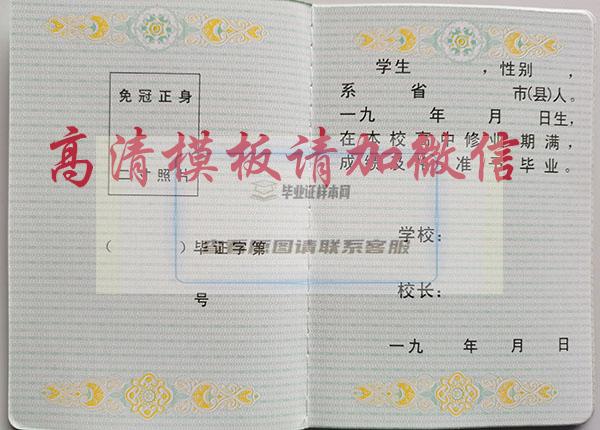 免冠正身
二寸照片
（ ）毕证字第
号
学生 ，性别 ，
系 省 市(县)人。
一九 年 月 日生，
在本校高中修业期满，
成绩及格准予毕业。
学校：
校长：
一九 年 月 日
高清模板请加微信
毕业证样本网
原图请联系客服